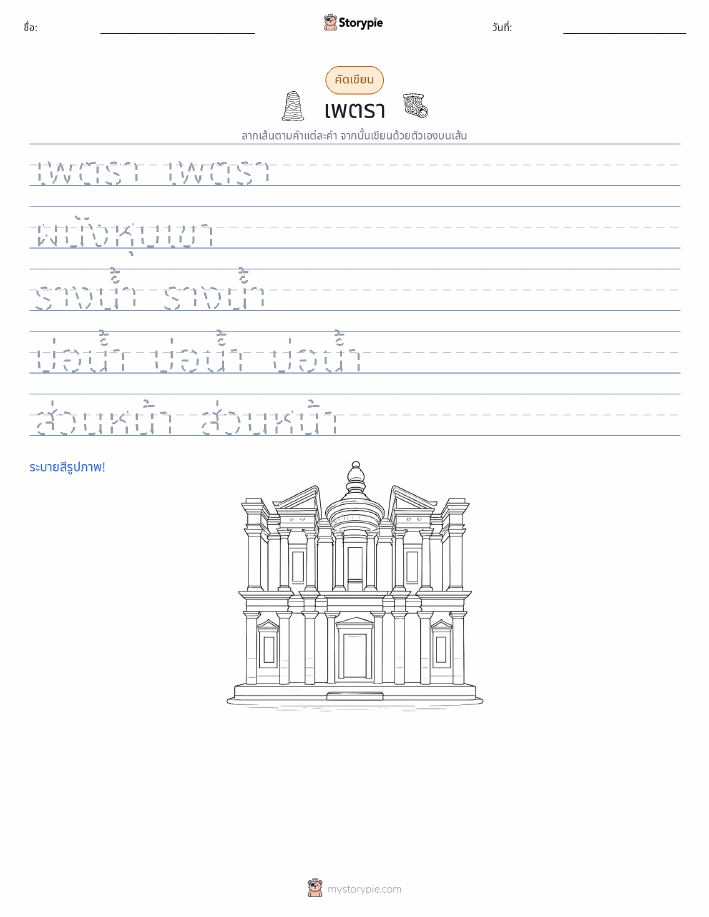 ชื่อ: วันที่:
Storypie
คัดเขียน
เพตรา
ลากเส้นตามคำแต่ละคำ จากนั้นเขียนด้วยตัวเองบนเส้น
เพตรา เพตรา
ผนังหุบเขา
รางน้ำ รางน้ำ
บ่อน้ำ บ่อน้ำ บ่อน้ำ
ส่วนหน้า ส่วนหน้า
ระบายสีรูปภาพ!
mystorypie.com